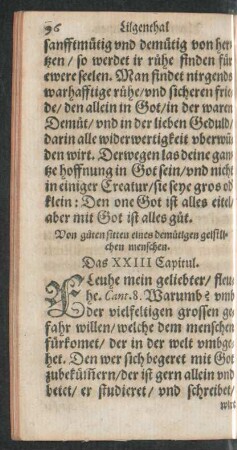 96 Lilgenthal
sanfftmütig vnd demütig von her
tzen/ so werdet ir rühe finden für
ewere seelen. Man findet nirgends
warhafftige rühe/ vnd sicheren frie
de/ den allein in Got/ in der waren
Demüt/ vnd in der lieben Geduld/
darin alle widerwertigkeit vberwü
den wirt. Derwegen las deine gan
tze hoffnung in Got sein/ vnd nicht
in einiger Creatur/ sie seye gros od
klein: Den one Got ist alles eitel/
aber mit Got ist alles güt.
Von güten sitten eines demütigen geistli
chen menschen.
Das XXIII Capitul.
FLeuhe mein geliebter/ fleu
he. Cant. 8. Warumb? vmb
der vielfeltigen grossen ge
fahr willen/ welche dem menschen
fürkomet/ der in der welt vmbge
het. Den wer sich begeret mit Got
zubekümern/ der ist gern allein vnd
betet/ er studieret/ vnd schreibet/
wirt